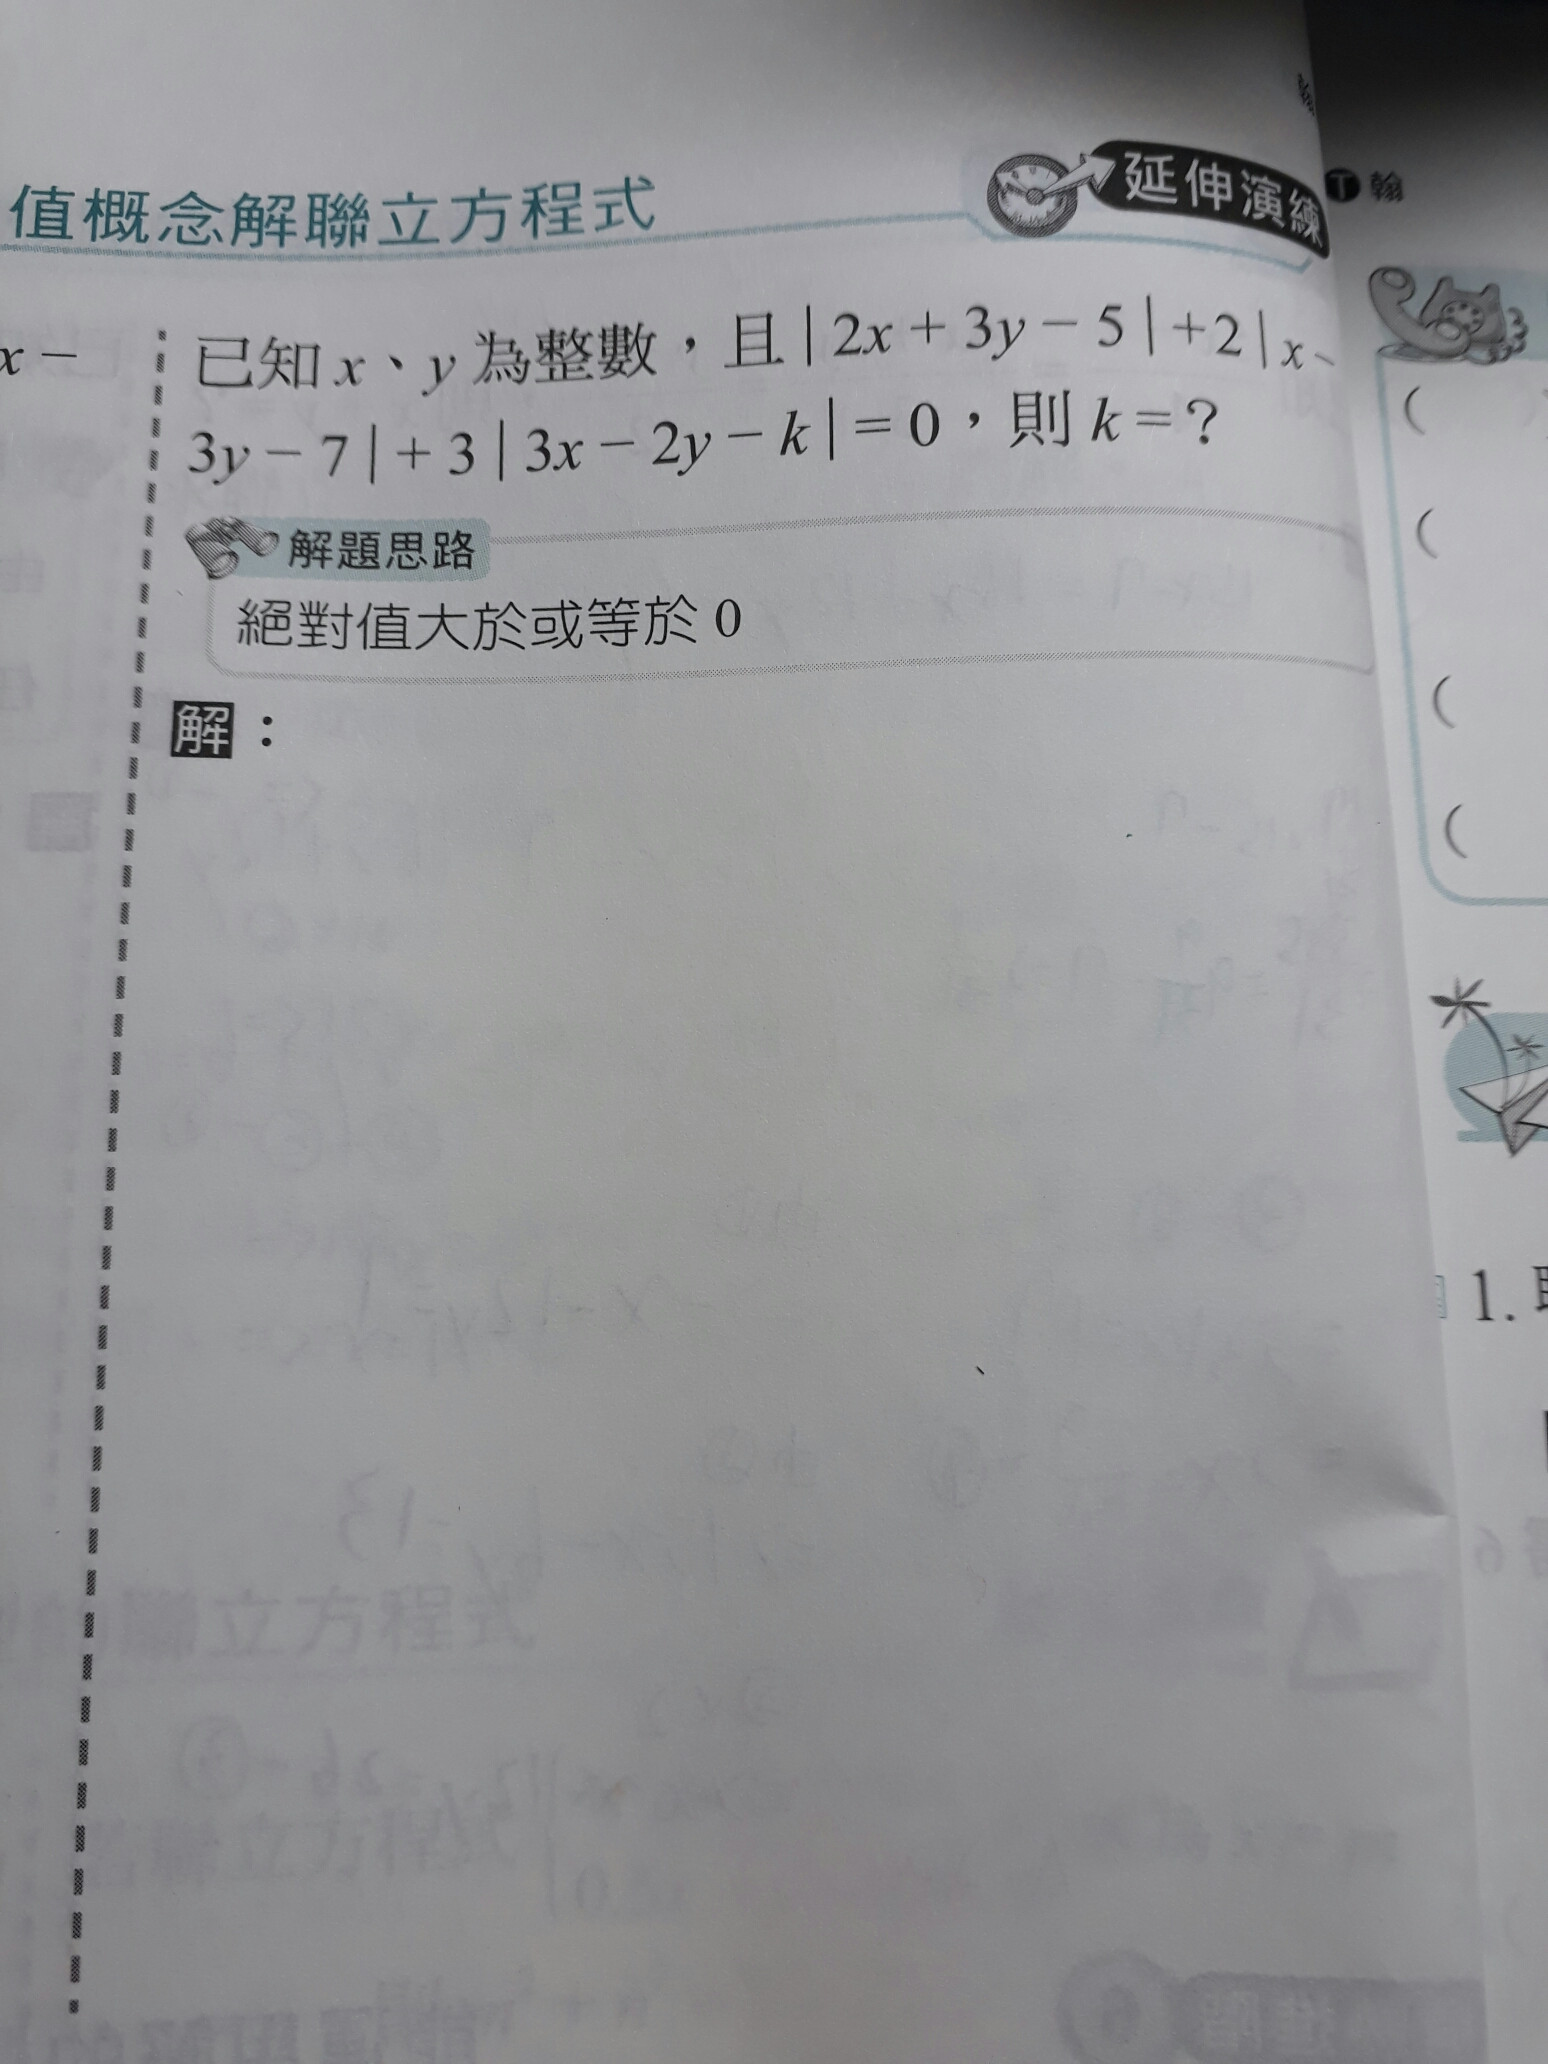 值概念解聯立方程式
延伸演練
T 翰
x－
已知 x、y 為整數，且｜2x＋3y－5｜＋2｜x
3y－7｜＋3｜3x－2y－k｜＝0，則 k＝？
解題思路
絕對值大於或等於 0
解：
(
(
(
(
1.